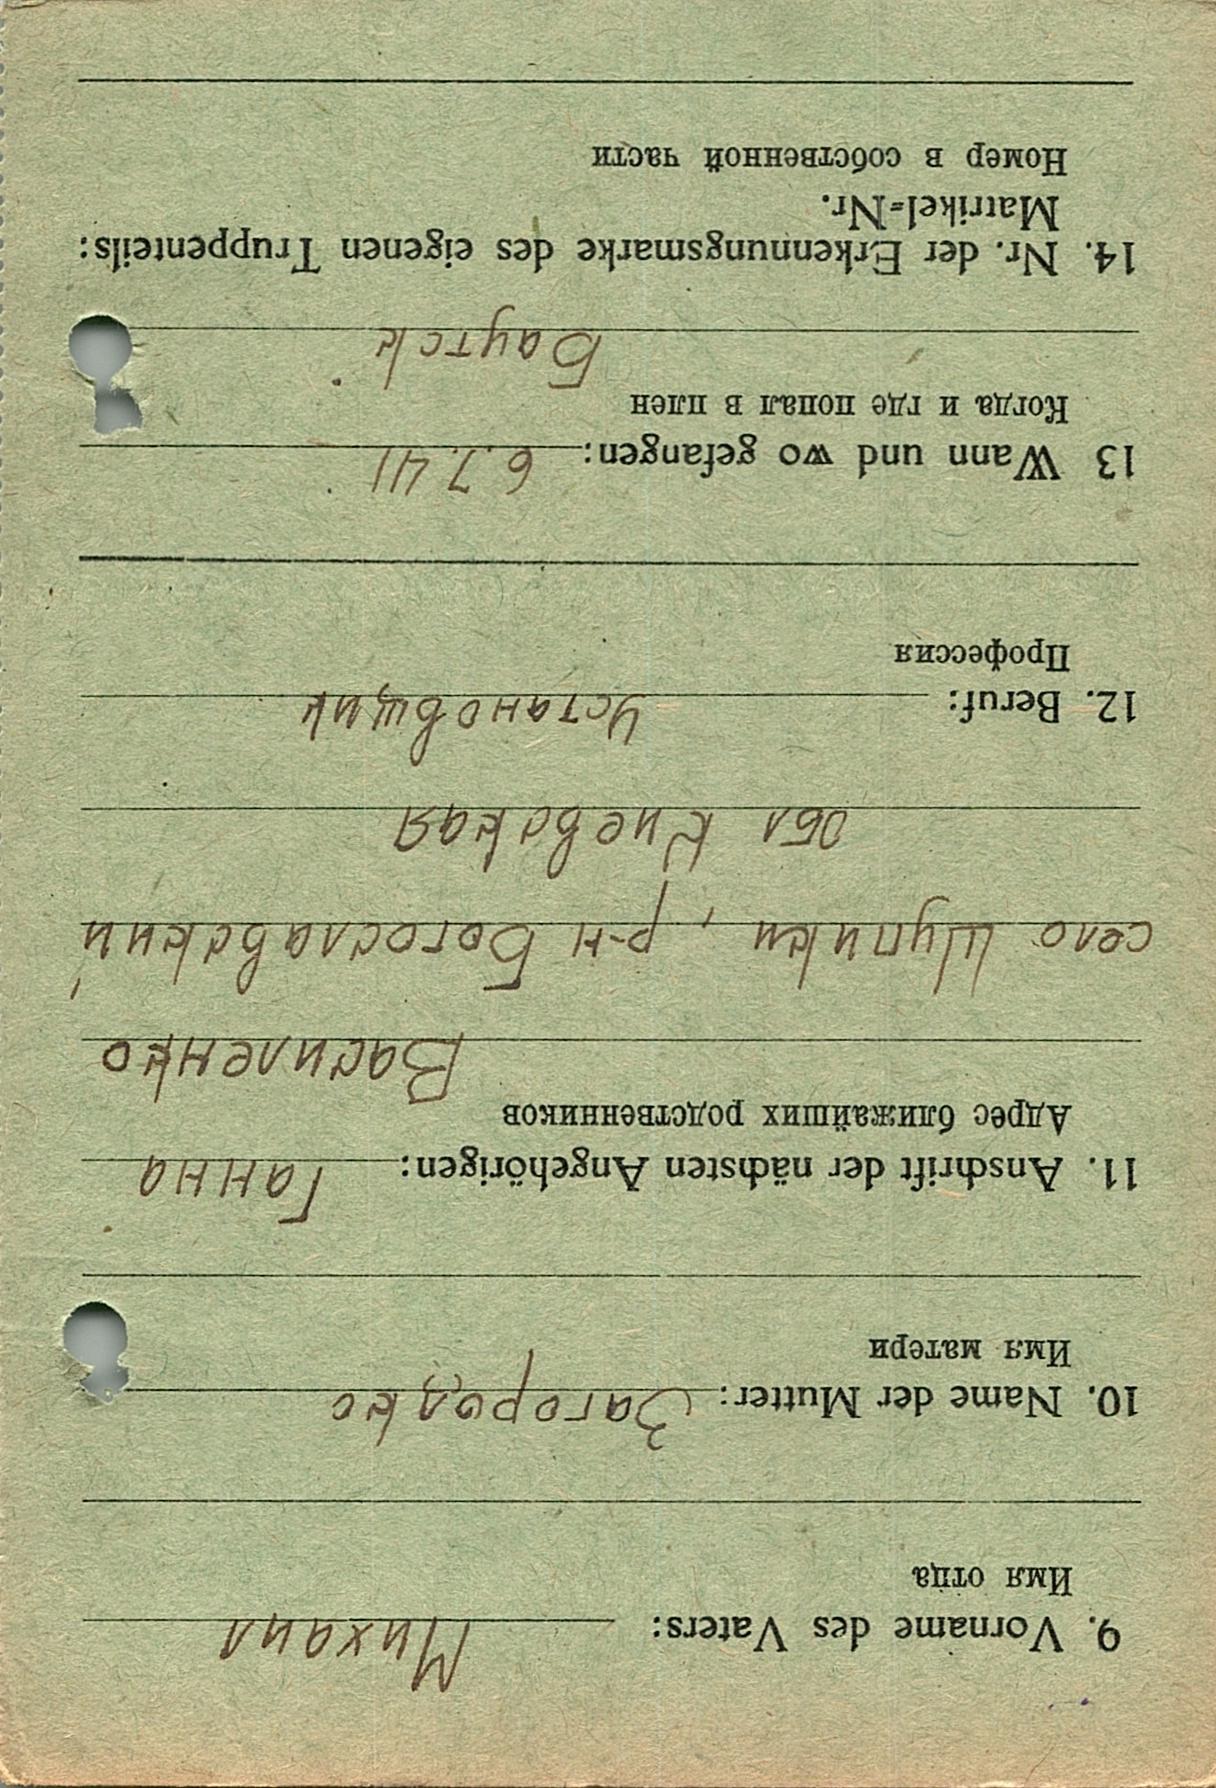 9. Vorname des Vaters: Михаил
Имя отца
10. Name der Mutter: Загородко
Имя матери
11. Anschrift der nächsten Angehörigen: Ганна
Адрес ближайших родственников
Василенко
село Шупики, р-н Богославский,
обл Киевская
12. Beruf: Установщик
Профессия
13 Wann und wo gefangen: 6.7.41
Когда и где попал в плен
Баутск
14. Nr. der Erkennungsmarke des eigenen Truppenteils:
Matrikel=Nr.
Номер в собственной части